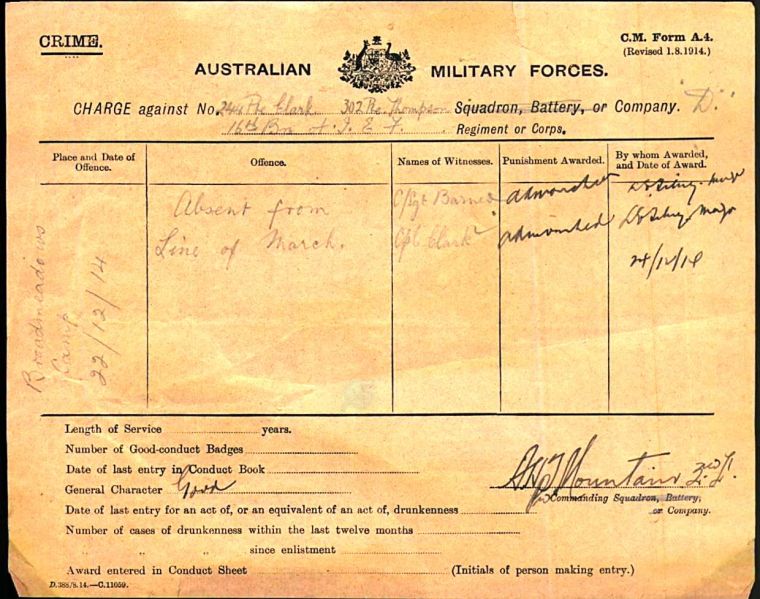 CRIME.
C.M. Form A.4.
(Revised 1.8.1914.)
AUSTRALIAN MILITARY FORCES.
CHARGE against No. Pte Clark 302 Pte Thompson Squadron, Battery, or Company. "D."
16th Bn A. I. E. F. Regiment or Corps.
Place and Date of Offence.
Offence.
Names of Witnesses.
Punishment Awarded.
By whom Awarded, and Date of Award.
Broadmeadows
Camp
22/12/14
Absent from
Line of March.
C/Sgt Barnes
Cpl Clark
admonished
admonished
Major
Major
24/12/14
Length of Service years.
Number of Good-conduct Badges
Date of last entry in Conduct Book
General Character Good
Date of last entry for an act of, or an equivalent of an act of, drunkenness
Number of cases of drunkenness within the last twelve months
" " since enlistment
Award entered in Conduct Sheet (Initials of person making entry.)
Mountain 2nd Lt.
Commanding Squadron, Battery,
or Company.
D.388/8.14.—C.11059.